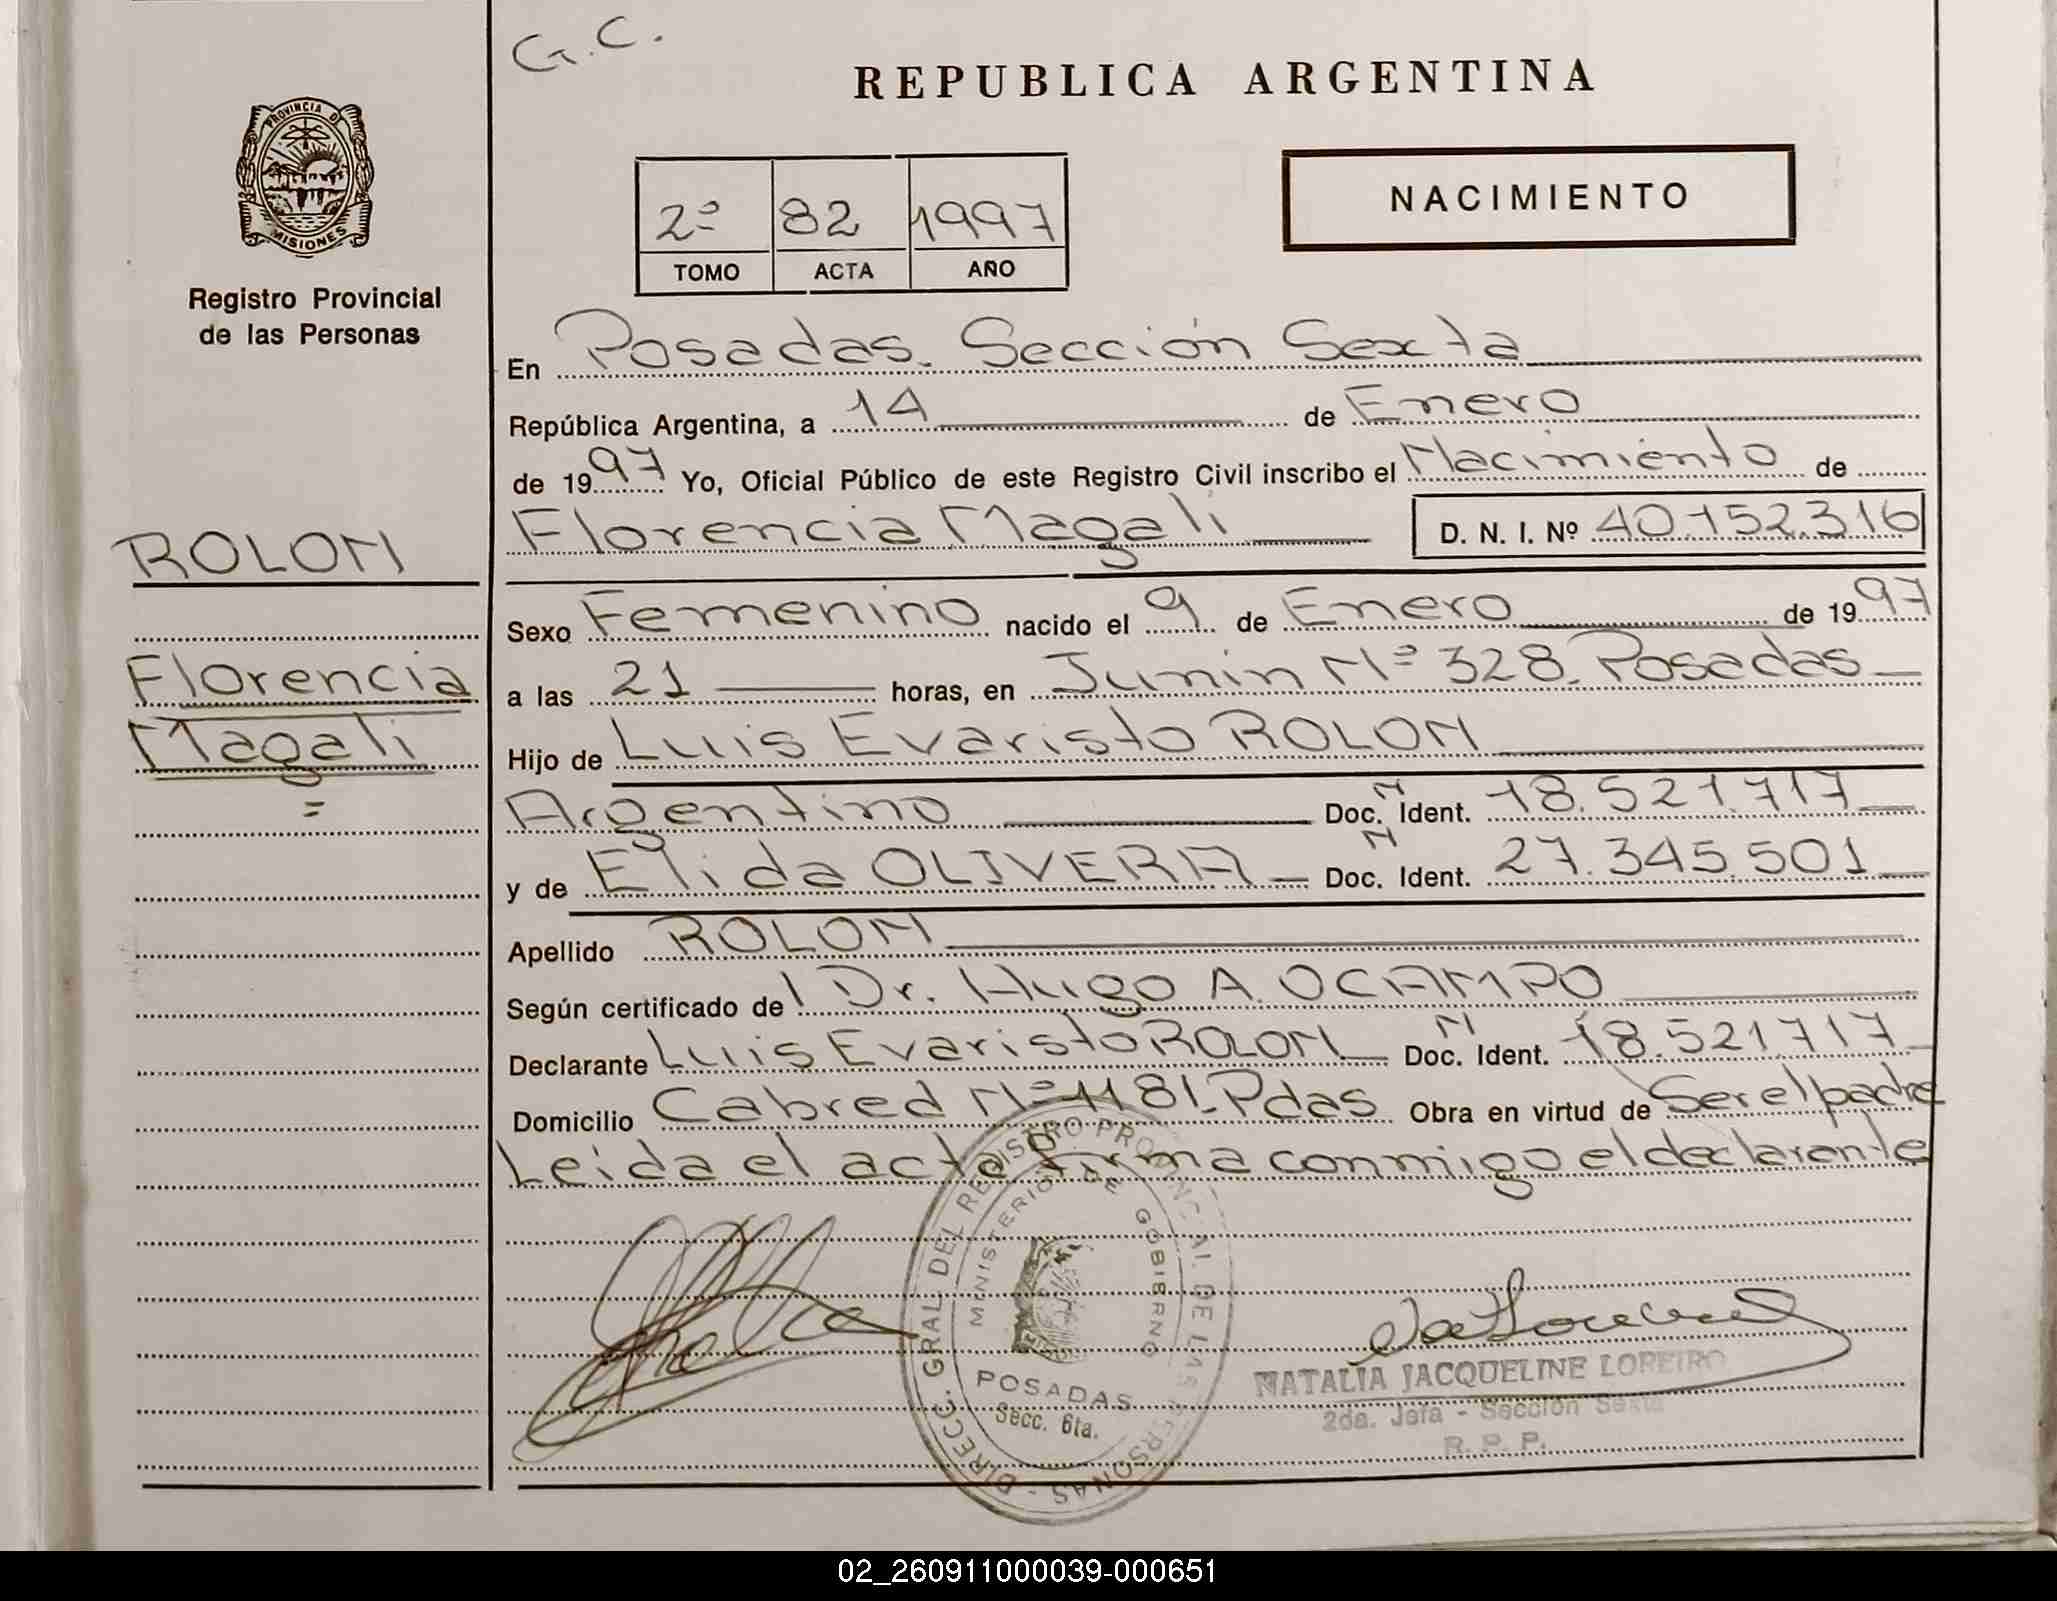 G.C.
REPUBLICA ARGENTINA
PROVINCIA DE
MISIONES
Registro Provincial
de las Personas
2º 82 1997
TOMO ACTA AÑO
NACIMIENTO
En Posadas. Sección Sexta
República Argentina, a 14 de Enero
de 1997 Yo, Oficial Público de este Registro Civil inscribo el Nacimiento de
Florencia Magali D. N. I. Nº 40.152.316
ROLON
Florencia
Magali
=
Sexo Femenino nacido el 9 de Enero de 1997
a las 21 horas, en Junin Nº 328. Posadas
Hijo de Luis Evaristo ROLON
Argentino Doc. N Ident. 18.521.717
y de Elida OLIVERA Doc. N Ident. 27.345.501
Apellido ROLON
Según certificado del Dr. Hugo A. OCAMPO
Declarante Luis Evaristo ROLON Doc. N Ident. 18.521.717
Domicilio Cabred Nº 1181. Pdas Obra en virtud de Ser el padre
Leida el acta firma conmigo el declarante
DIRECC. GRAL DEL REGISTRO PROVINCIAL DE LAS PERSONAS -
MINISTERIO DE GOBIERNO
POSADAS
Secc. 6ta.
NATALIA JACQUELINE LOREIRO
2da. Jefa - Sección Sexta
R. P. P.
02_260911000039-000651